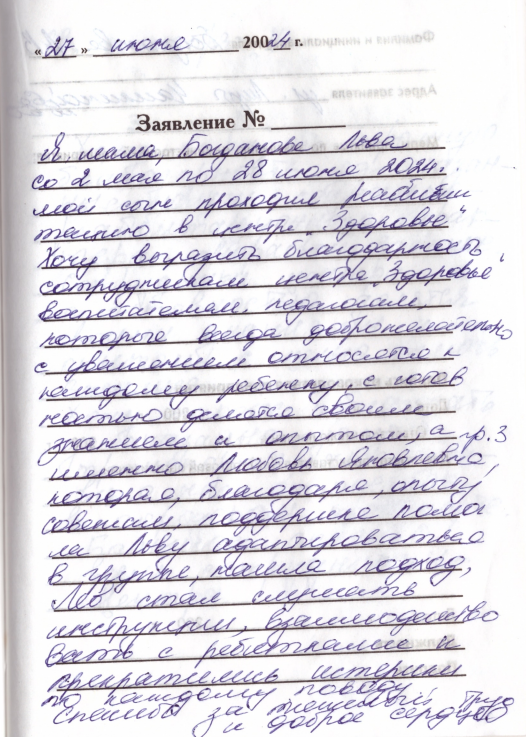 « 27 » июня 200 24 г.
Заявление №
Я мама, Богданова Льва
со 2 мая по 28 июня 2024г.
мой сын проходил реабили
тацию в центре "Здоровье"
Хочу выразить благодарность
сотрудникам центра "Здоровье"
воспитателям, педагогам,
которые всегда доброжелательно
с уважением относятся к
каждому ребенку, с готов
ностью делятся своим
знанием и опытом, а гр.3
именно Любовь Яковлевна,
которая, благодаря, опыту,
советам, поддержке помог
ла Льву адаптироваться
в группе, нашла подход,
Лев стал слушать
инструкции, взаимодейство
вать с ребятками и
прекратились истерики
по каждому поводу.
Спасибо за
и доброе сердце